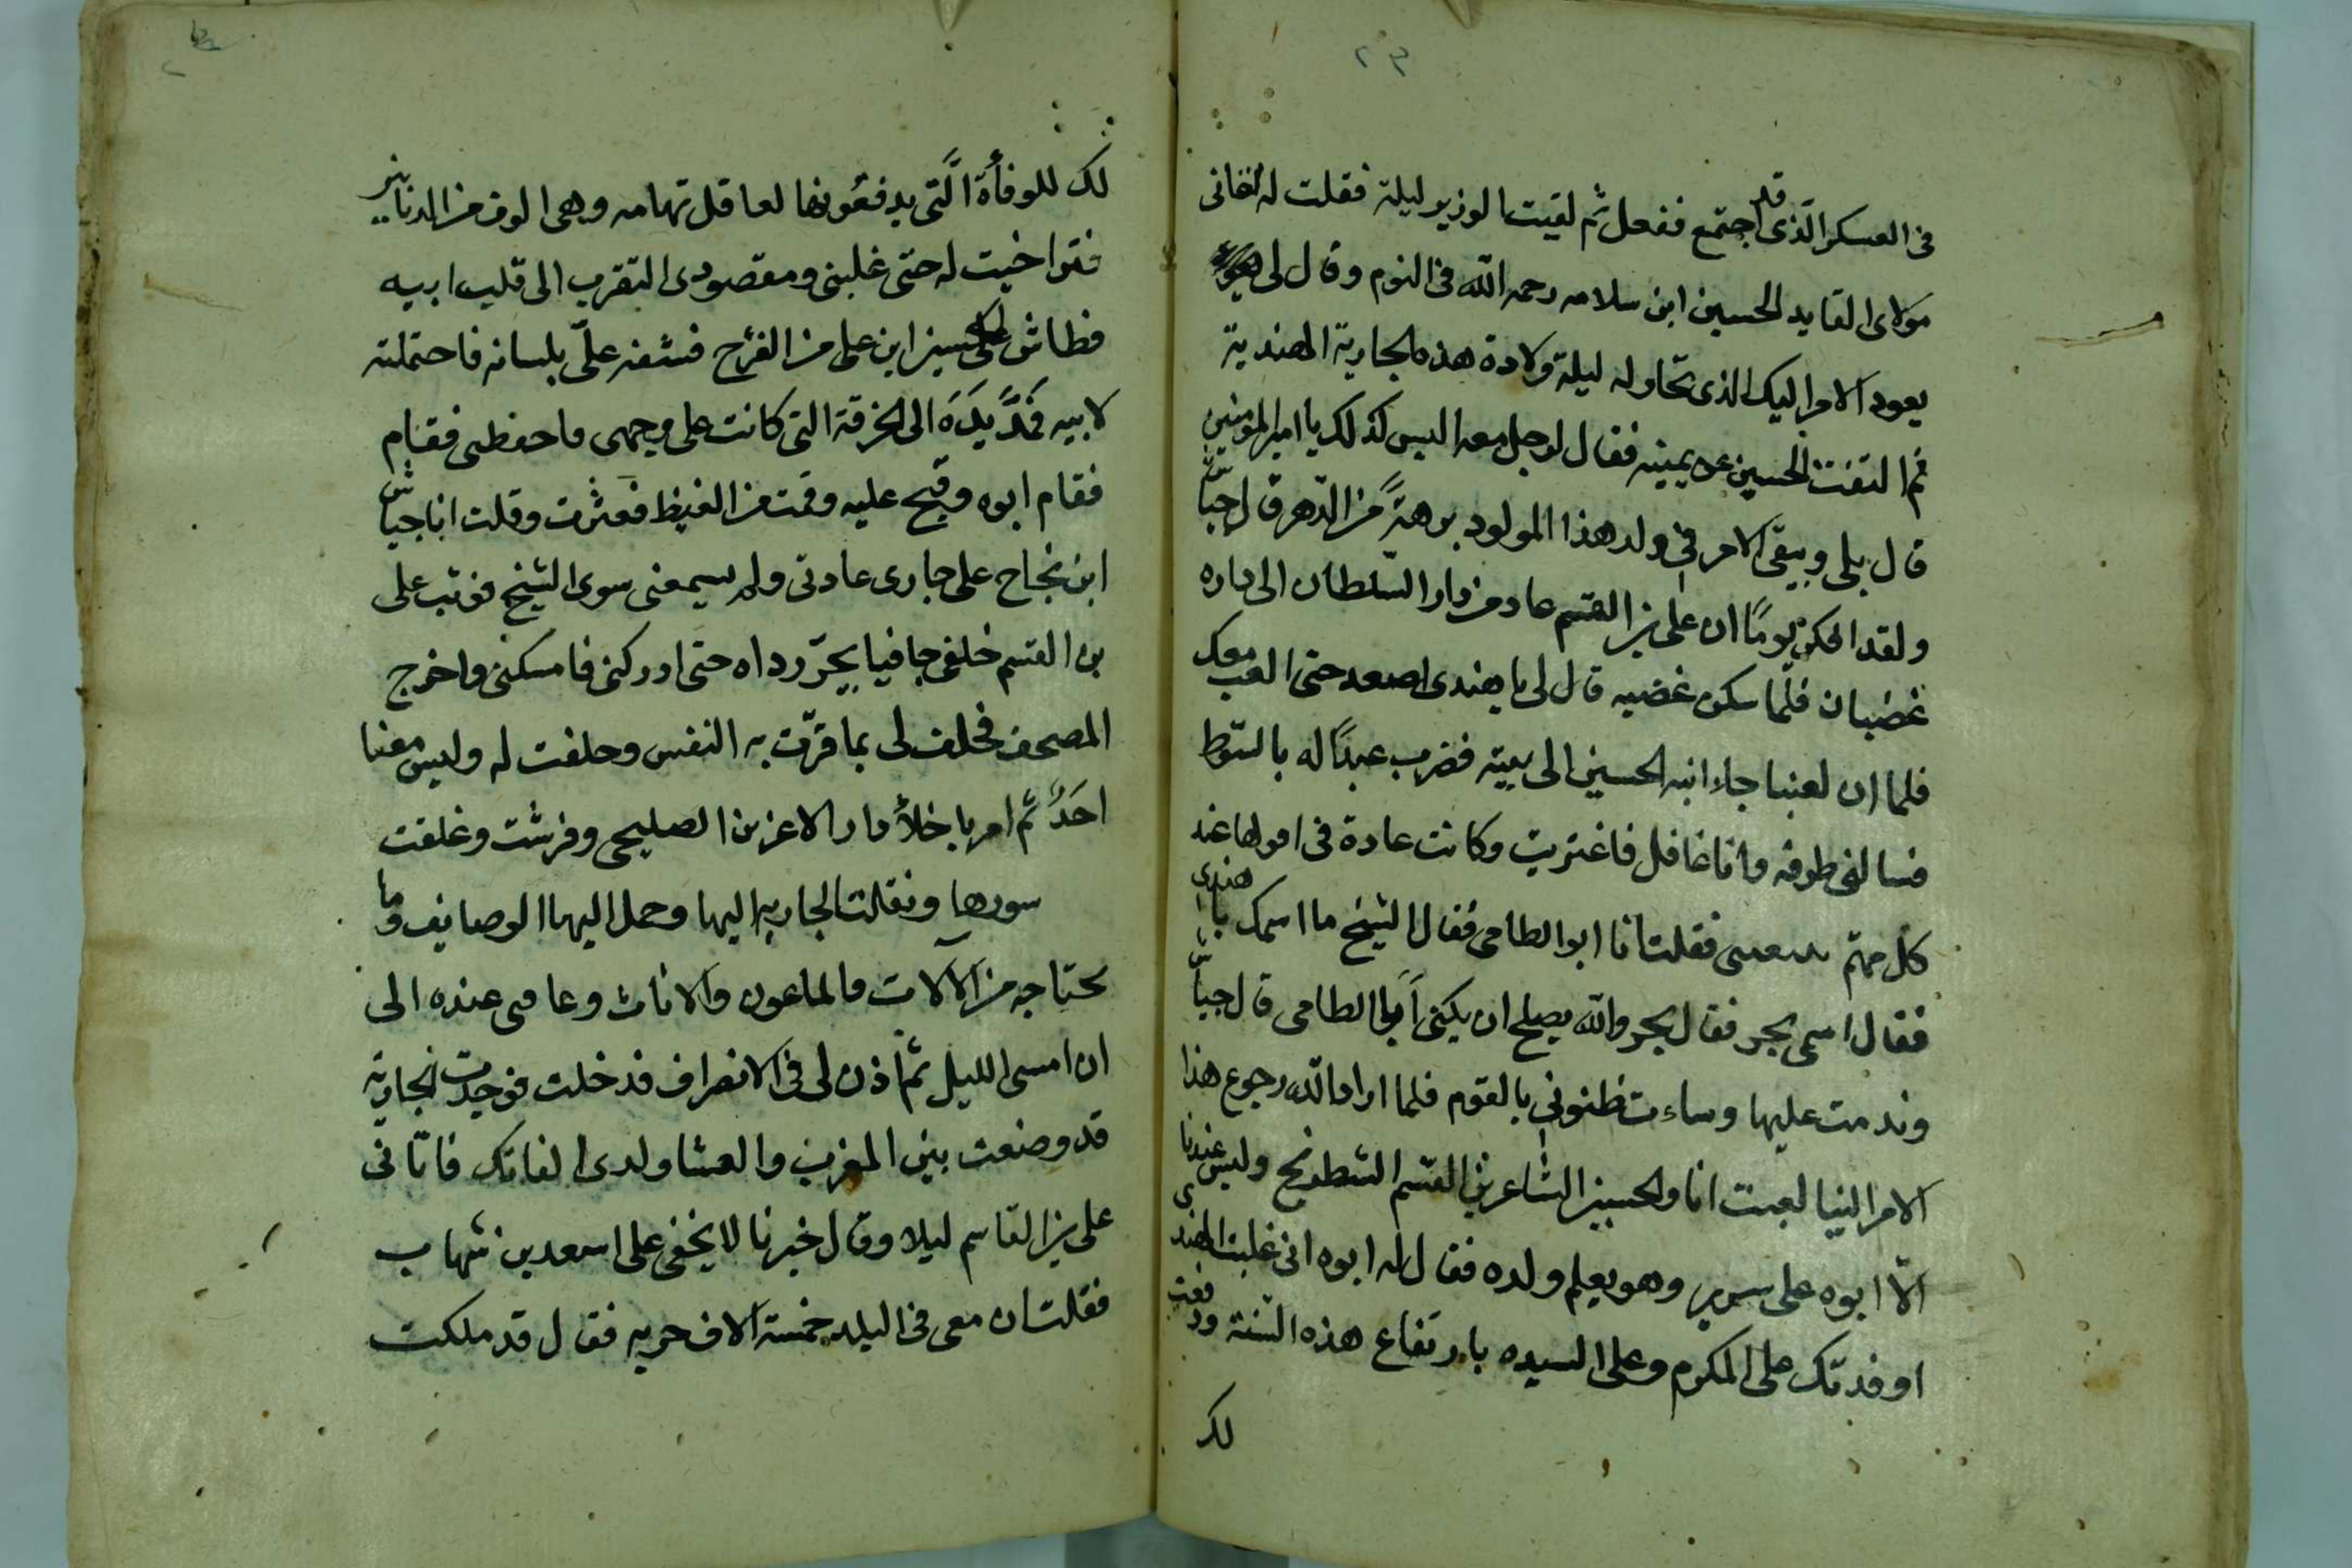 ٢٣
في العسكر الذي قد اجتمع ففعل ثم لقيت الوزير ليلة فقلت له اتاني
مولاي القايد الحسين ابن سلامه رحمه الله في النوم وقال لي
يعود الامر اليك الذي تحاوله ليلة ولادة هذه الجارية الهندية
ثم التفت الحسين عن يمينه فقال لرجل معه اليس كذلك يا امير المومنين
قال بلى ويبقى الامر في ولد هذا المولود برهةً من الدهر قال جياش
ولقد اذكر يومًا ان علي بن القسم عاد من دار السلطان الى داره
غضبان فلما سكن غضبه قال لي يا هندي اصعد حتى العب معك
فلما ان لعبنا جاء ابنه الحسين الى بيته فضرب عبدًا له بالسوط
فنالني طرفه وانا غافل فاعتزيت وكانت عادة في اقولها عند
كل مهم فقلت انا ابو الطامي فقال الشيخ ما اسمك يا هندي
فقال اسمي بحر فقال بحر والله يصلح ان يكنى أبا الطامي قال جياش
وندمت عليها وساءت ظنوني بالقوم فلما اراد الله رجوع هذا
الامر الينا لعبت انا والحسين الشاعر بن القسم الشطرنج وليس عندنا
الا ابوه على سرير وهو يعلم ولده فقال له ابوه ان غلبت الهندي
اوفدتك على المكرم وعلى السيده بارتفاع هذه السنة ودفعت
لك
لك للوفأة التي يدفعونها لعاقل تهامه وهي الوف من الدنانير
فتراخيت له حتى غلبني ومقصودي التقرب الى قلب ابيه
فطاش الحسين ابن علي من الفرح فسفه عليّ بلسانه فاحتملته
لابيه فمدَّ يدَه الى الخرقة التي كانت على وجهي فاحفظني فقام
فقام ابوه وقبح عليه وقمت من الغيظ فعثرت وقلت انا جياش
ابن نجاح على جاري عادتي ولم يسمعني سوى الشيخ فوثب علي
بن القسم خلفي حافيا يجرّ رداه حتى ادركني فامسكني واخرج
المصحف فحلف لي بما قرّت به النفس وحلفت له وليس معنا
احدٌ ثم امر باخلأ دار الاعز بن الصليحي وفرشت وغلقت
سورها ونقلت الجاريه اليها وحمل اليها الوصايف وما
يحتاجه من الآلات والماعون والاناث وعاقني عنده الى
ان امسى الليل ثم اذن لي في الانصراف فدخلت فوجدت الجارية
قد وضعت بين المغرب والعشا ولدي الفاتك فاتاني
علي بن القاسم ليلا وقال خبرنا لا يخفى على اسعد بن شهاب
فقلت ان معي في البلد خمسة الاف حربه فقال قد ملكت